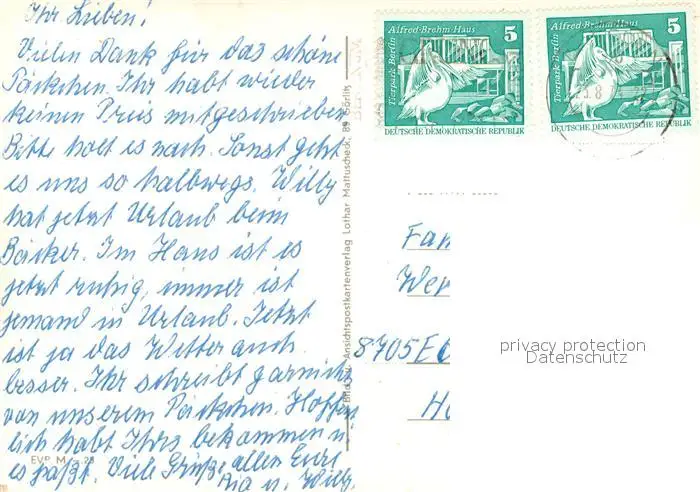 Ihr Lieben!
Vielen Dank für das schöne
Päckchen. Ihr habt wieder
keinen Preis mitgeschrieben
Bitte holt es nach. Sonst geht
es uns so halbwegs. Willy
hat jetzt Urlaub beim
Bäcker. Im Haus ist es
jetzt ruhig, immer ist
jemand in Urlaub. Jetzt
ist ja das Wetter auch
besser. Ihr schreibt garnicht
von unserem Päckchen. Hoffent
lich habt Ihrs bekommen u.
es paßt. Viele Grüße allen Eure
Ria u. Willy.
EVP M -.25
Bild u. Ansichtspostkartenverlag Lothar Mattuscheck, 89 Görlitz
Alfred-Brehm-Haus 5
Tierpark Berlin
DEUTSCHE DEMOKRATISCHE REPUBLIK
Alfred-Brehm-Haus 5
Tierpark Berlin
DEUTSCHE DEMOKRATISCHE REPUBLIK
Fam
Wer
8705 E
H
privacy protection
Datenschutz